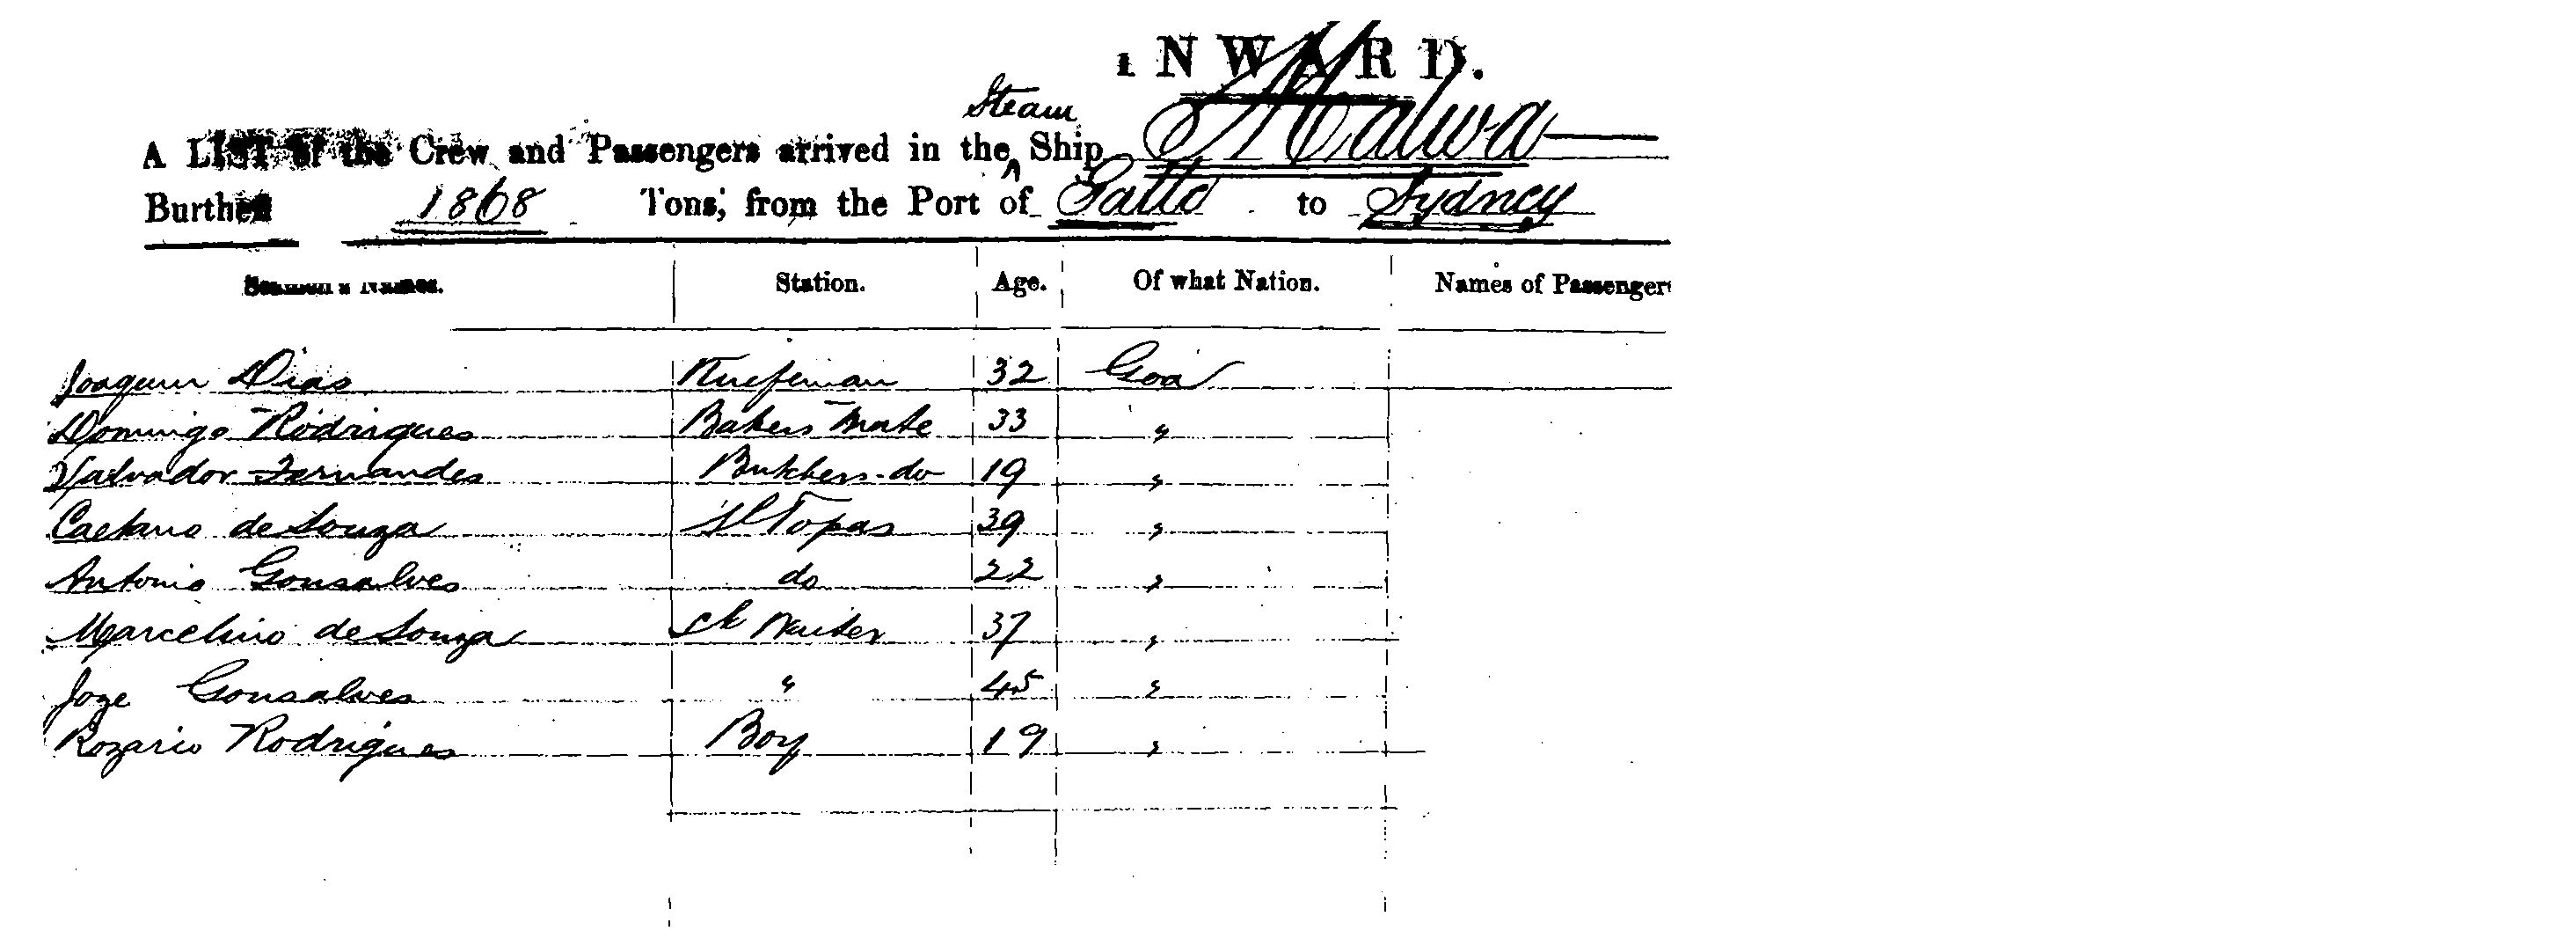 INWARD.
Steam
A LIST of the Crew and Passengers arrived in the ^ Ship Malwa
Burthen 1868 Tons, from the Port of Galle to Sydney
Seaman's Names. Station. Age. Of what Nation. Names of Passengers
Joaquim Dias Knifeman 32 Goa
Domingo Rodrigues Bakers Mate 33 "
Salvador Fernandes Butchers do 19 "
Caetano de Souza Topas 39 "
Antonio Gonsalves do 22 "
Marcelino de Souza 37 "
Joze Gonsalves " 45 "
Rozario Rodrigues Boy 19 "